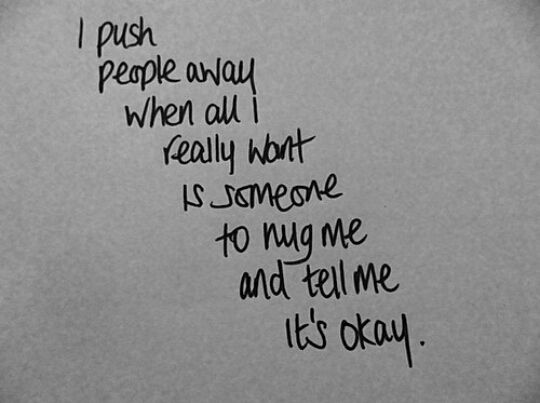 I push
people away
when all I
really want
is someone
to hug me
and tell me
it's okay.